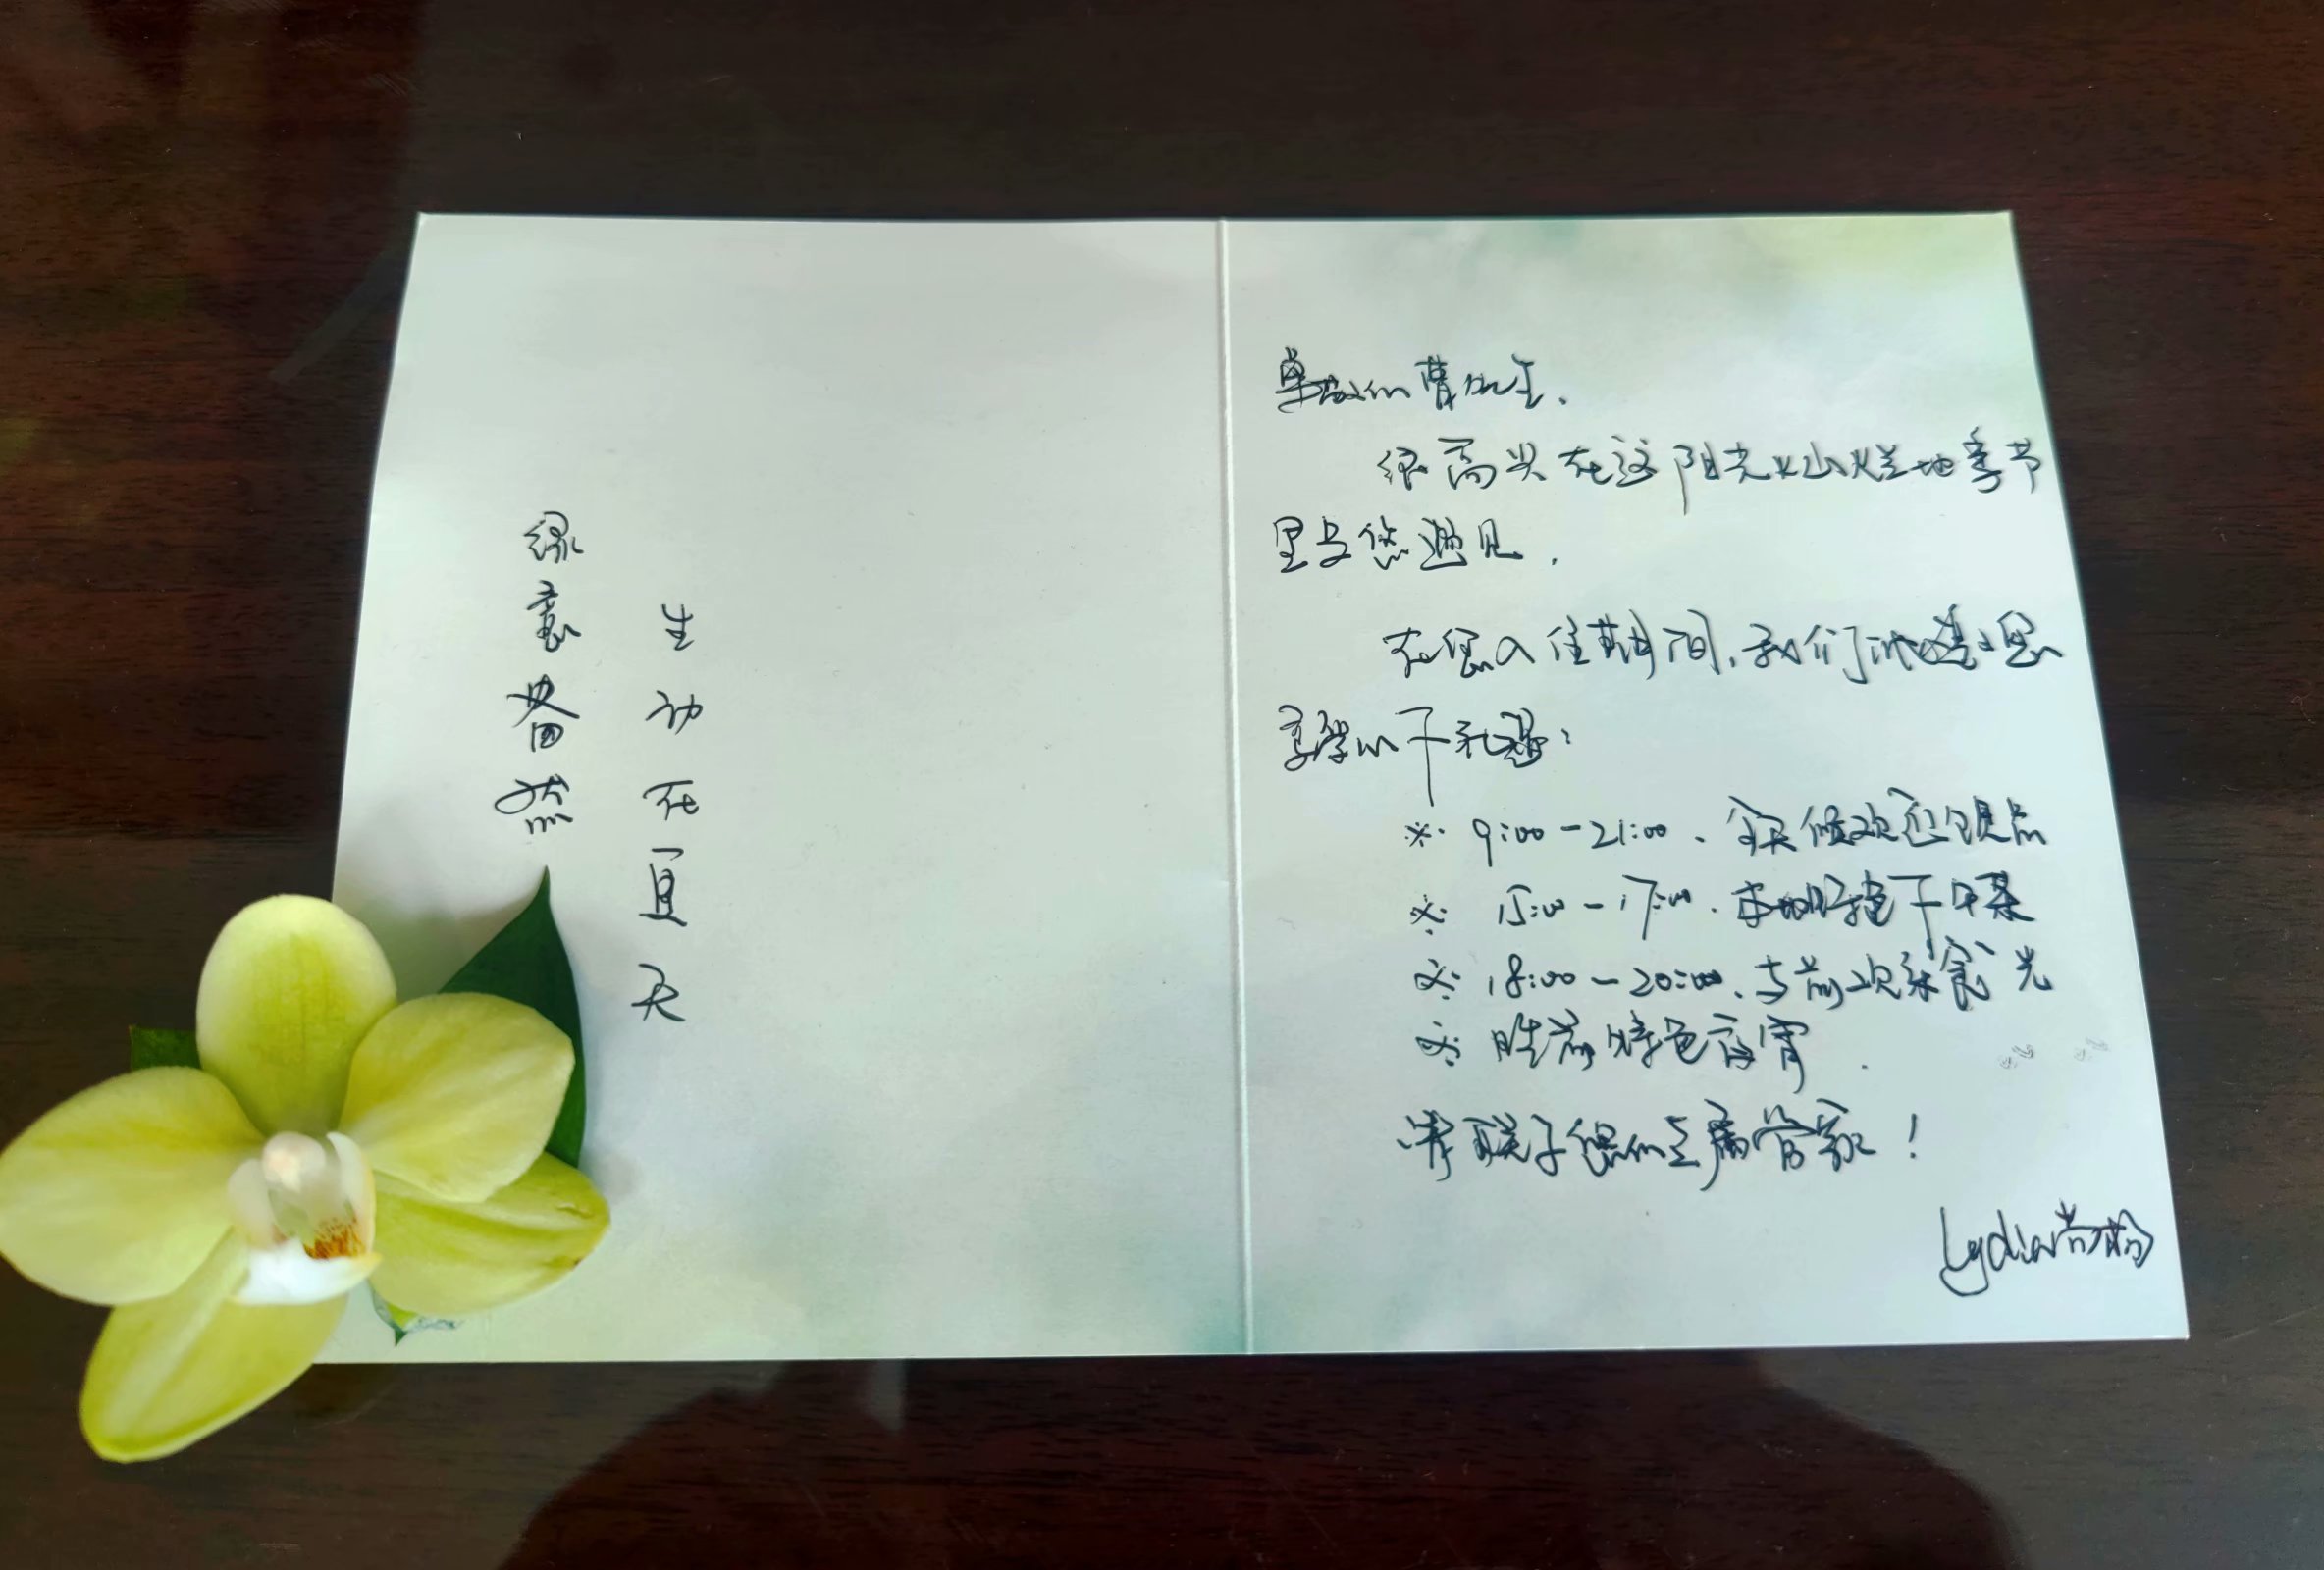 绿意盎然
生动在夏天
尊敬的曹先生.
很高兴在这阳光灿烂地季节
里与您遇见.
在您入住期间,我们诚邀您
享受以下礼遇:
※ 9:00-21:00、全天候欢迎饮品
※ 15:00-17:00.本地特色下午茶
※ 18:00-20:00、与前欢乐食光
※ 晚安特色夜宵.
请联系您的专属管家!
Lydia